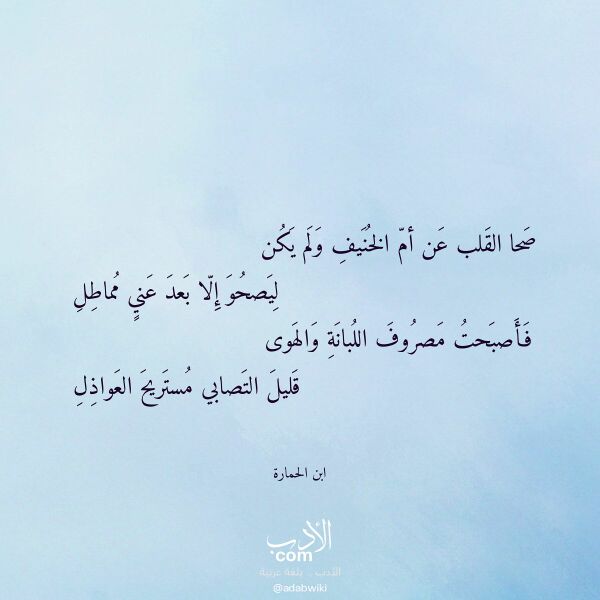 صَحا القَلب عَن أمّ الخُنَيفِ وَلَم يَكُن
لِيَصحُوَ إِلّا بَعدَ عَنيٍ مُماطِلِ
فَأَصبَحتُ مَصرُوفَ اللُبانَةِ وَالهَوى
قَليلَ التَصابي مُستَريحَ العَواذِلِ
ابن الحمارة
الأدب
com
الأدب .. بلغة عربية
@adabwiki